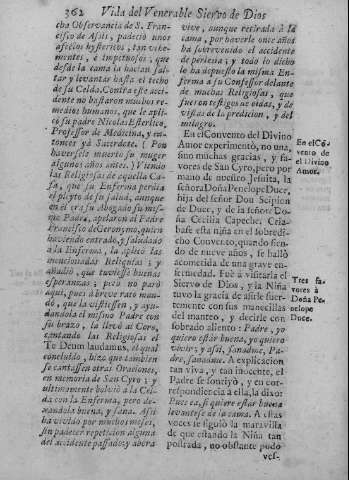 362 Vida del Venerable Siervo de Dios
cha Observancia de S. Fran-
cisco de Asis, padeciò unos
afectos hystericos, tan vehe-
mentes, e impetuosos, que
desde la cama la hacian sal-
tar y levantar hasta el techo
de su Celda. Contra este acci-
dente no bastaron muchos re-
medios humanos, que le apli-
có su padre Nicolas Esterlico,
Professor de Medicina, y en-
tonces yà Sacerdote. (Por
haversele muerto su muger
algunos años antes.) Viendo
las Religiosas de aquella Ca-
sa, que su Enferma perdia
el pleyto de su salud, aunque
en èl era su Abogado su mis-
mo Padre, apelaron al Padre
Francisco de Geronymo, quien
haviendo entrado, y saludado
à la Enferma, la aplicò las
mencionadas Reliquias; y
añadiò, que tuviesse buenas
esperanzas; pero no parò
aqui, pues à breve rato man-
dò, que la vistiessen, y ayu-
dandola el mismo Padre con
su brazo, la llevò al Coro,
cantando las Religiosas el
Te Deum laudamus, el qual
concluido, hizo que tambien
se cantassen otras Oraciones,
en memoria de San Cyro; y
ultimamente bolviò à la Cel-
da con la Enferma, pero de-
xandola buena, y sana. Assi
ha vivido por muchos meses,
sin padecer repeticion alguna
del accidente passado; y ahora
vive, aunque retirada à la
cama, por haverle once años
ha sobrevenido el accidente
de perlesia; y todo lo dicho
lo ha depuesto la misma En-
ferma à su Confessor delante
de muchas Religiosas, que
fueron testigos de oidas, y de
vistas de la predicion, y del
milagro.
En el Convento del Divino
Amor experimentò, no una,
sino muchas gracias, y fa-
vores de San Cyro, pero por
mano de nuestro Jesuita, la
señora Doña Penelope Duce,
hija del señor Don Scipion
de Duce, y de la señora Do-
ña Cecilia Capeche. Cria-
base esta niña en el sobredi-
cho Convento, quando sien-
do de nueve años, se hallò
acometida de una grave en-
fermedad. Fuè à visitarla el
Siervo de Dios, y la Niña
tuvo la gracia de asirle fuer-
temente con sus manecillas
del manteo, y decirle con
sobrado aliento: Padre, yo
quiero estar buena, yo quiero
vivir; y assi, sanadme, Pa-
dre, sanadme. A explicacion
tan viva, y tan inocente, el
Padre se sonriyò, y en cor-
respondiencia à ella, la dixo:
Pues ea, si quiere estar buena
levantese de la cama. A estas
voces se siguiò la maravilla
de que estando la Niña tan
postrada, no obstante pudo
ves-
En el Cõ-
vento de
el Divino
Amor.
Tres fa-
vores à
Doña Pe-
nelope
Duce.